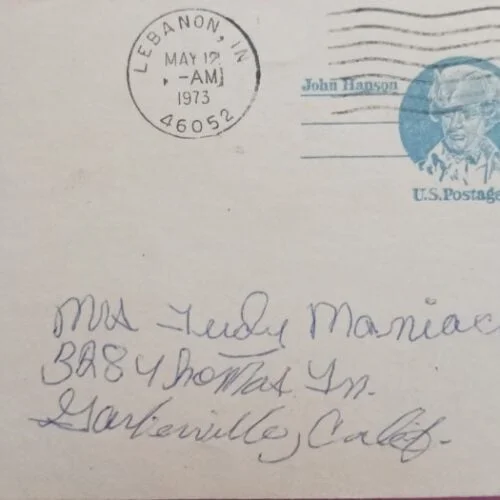 LEBANON, IN
MAY 12
-AM
1973
46052
John Hanson
U.S.Postage
Mrs Trudy Maniac
3284 Thomas Ln.
Calif.